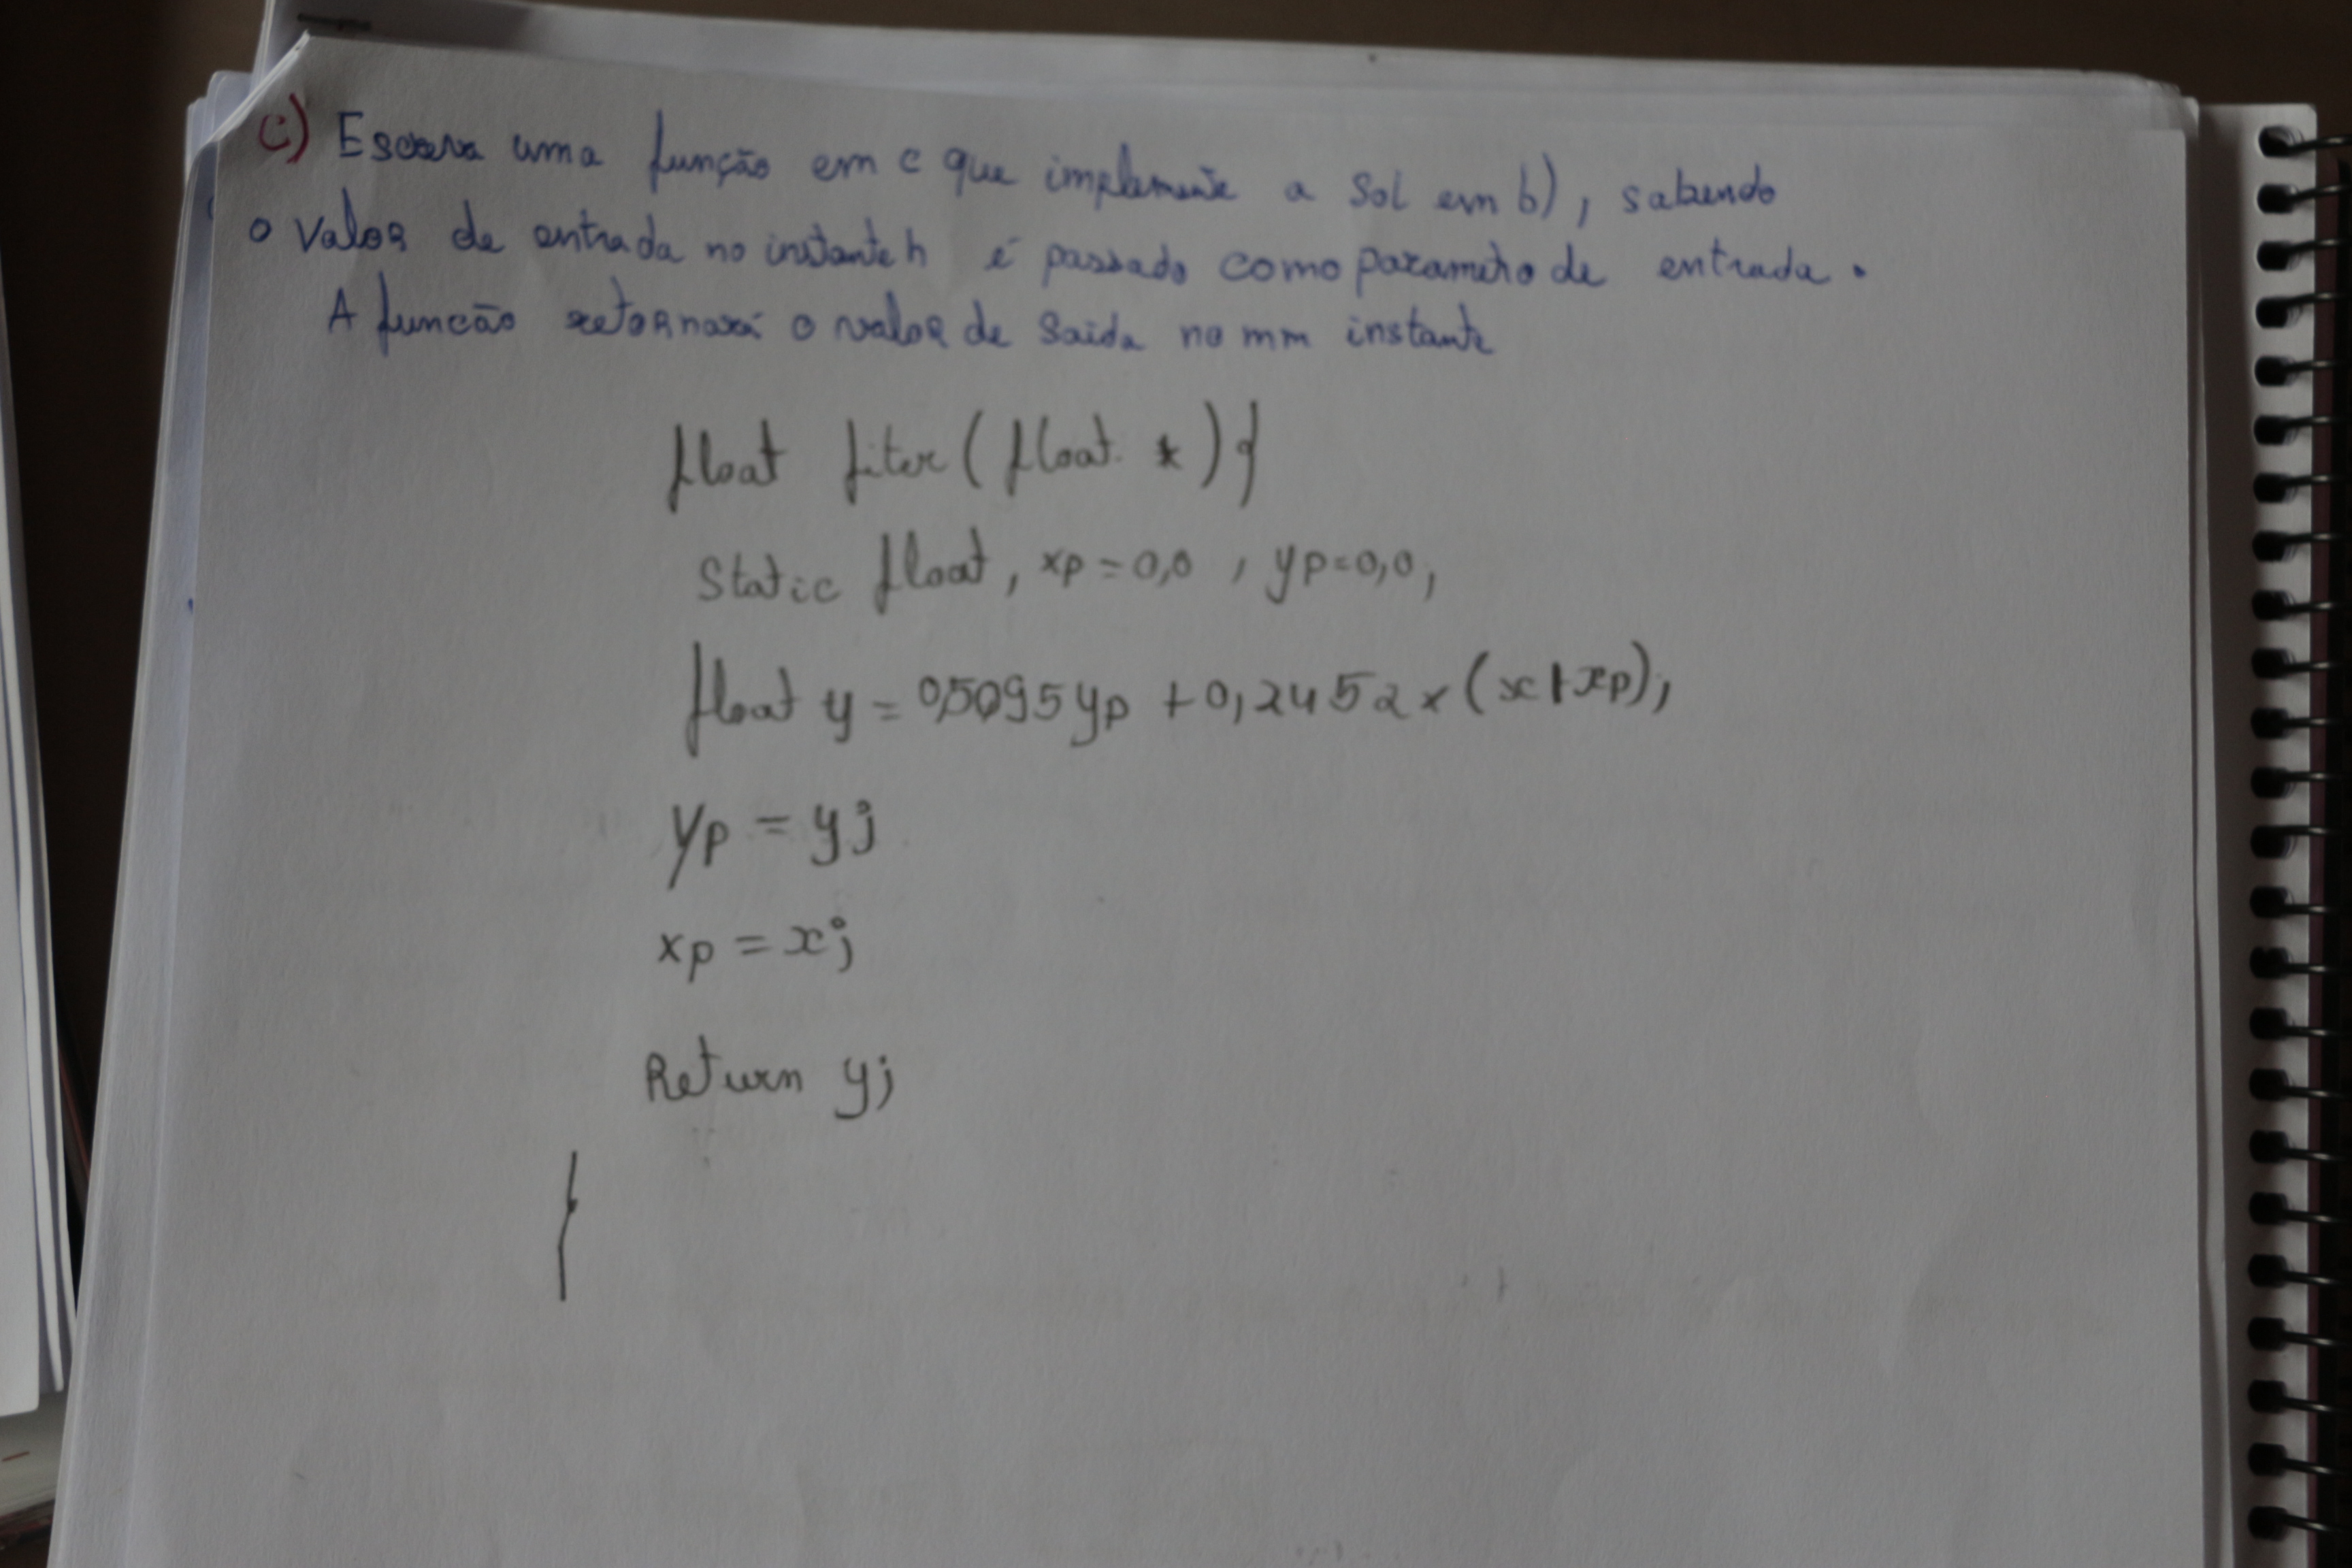 c) Escreva uma função em c que implemente a Sol em b), sabendo
o valor de entrada no instante n é passado como parametro de entrada.
A funcão retornará o valor de saída no mm instante
float fiter (float *) {
Static float, xp = 0,0 , yp = 0,0,
float y = 0,5095 yp + 0,2452 x (x + xp),
yp = y;
xp = x;
Return y;
}